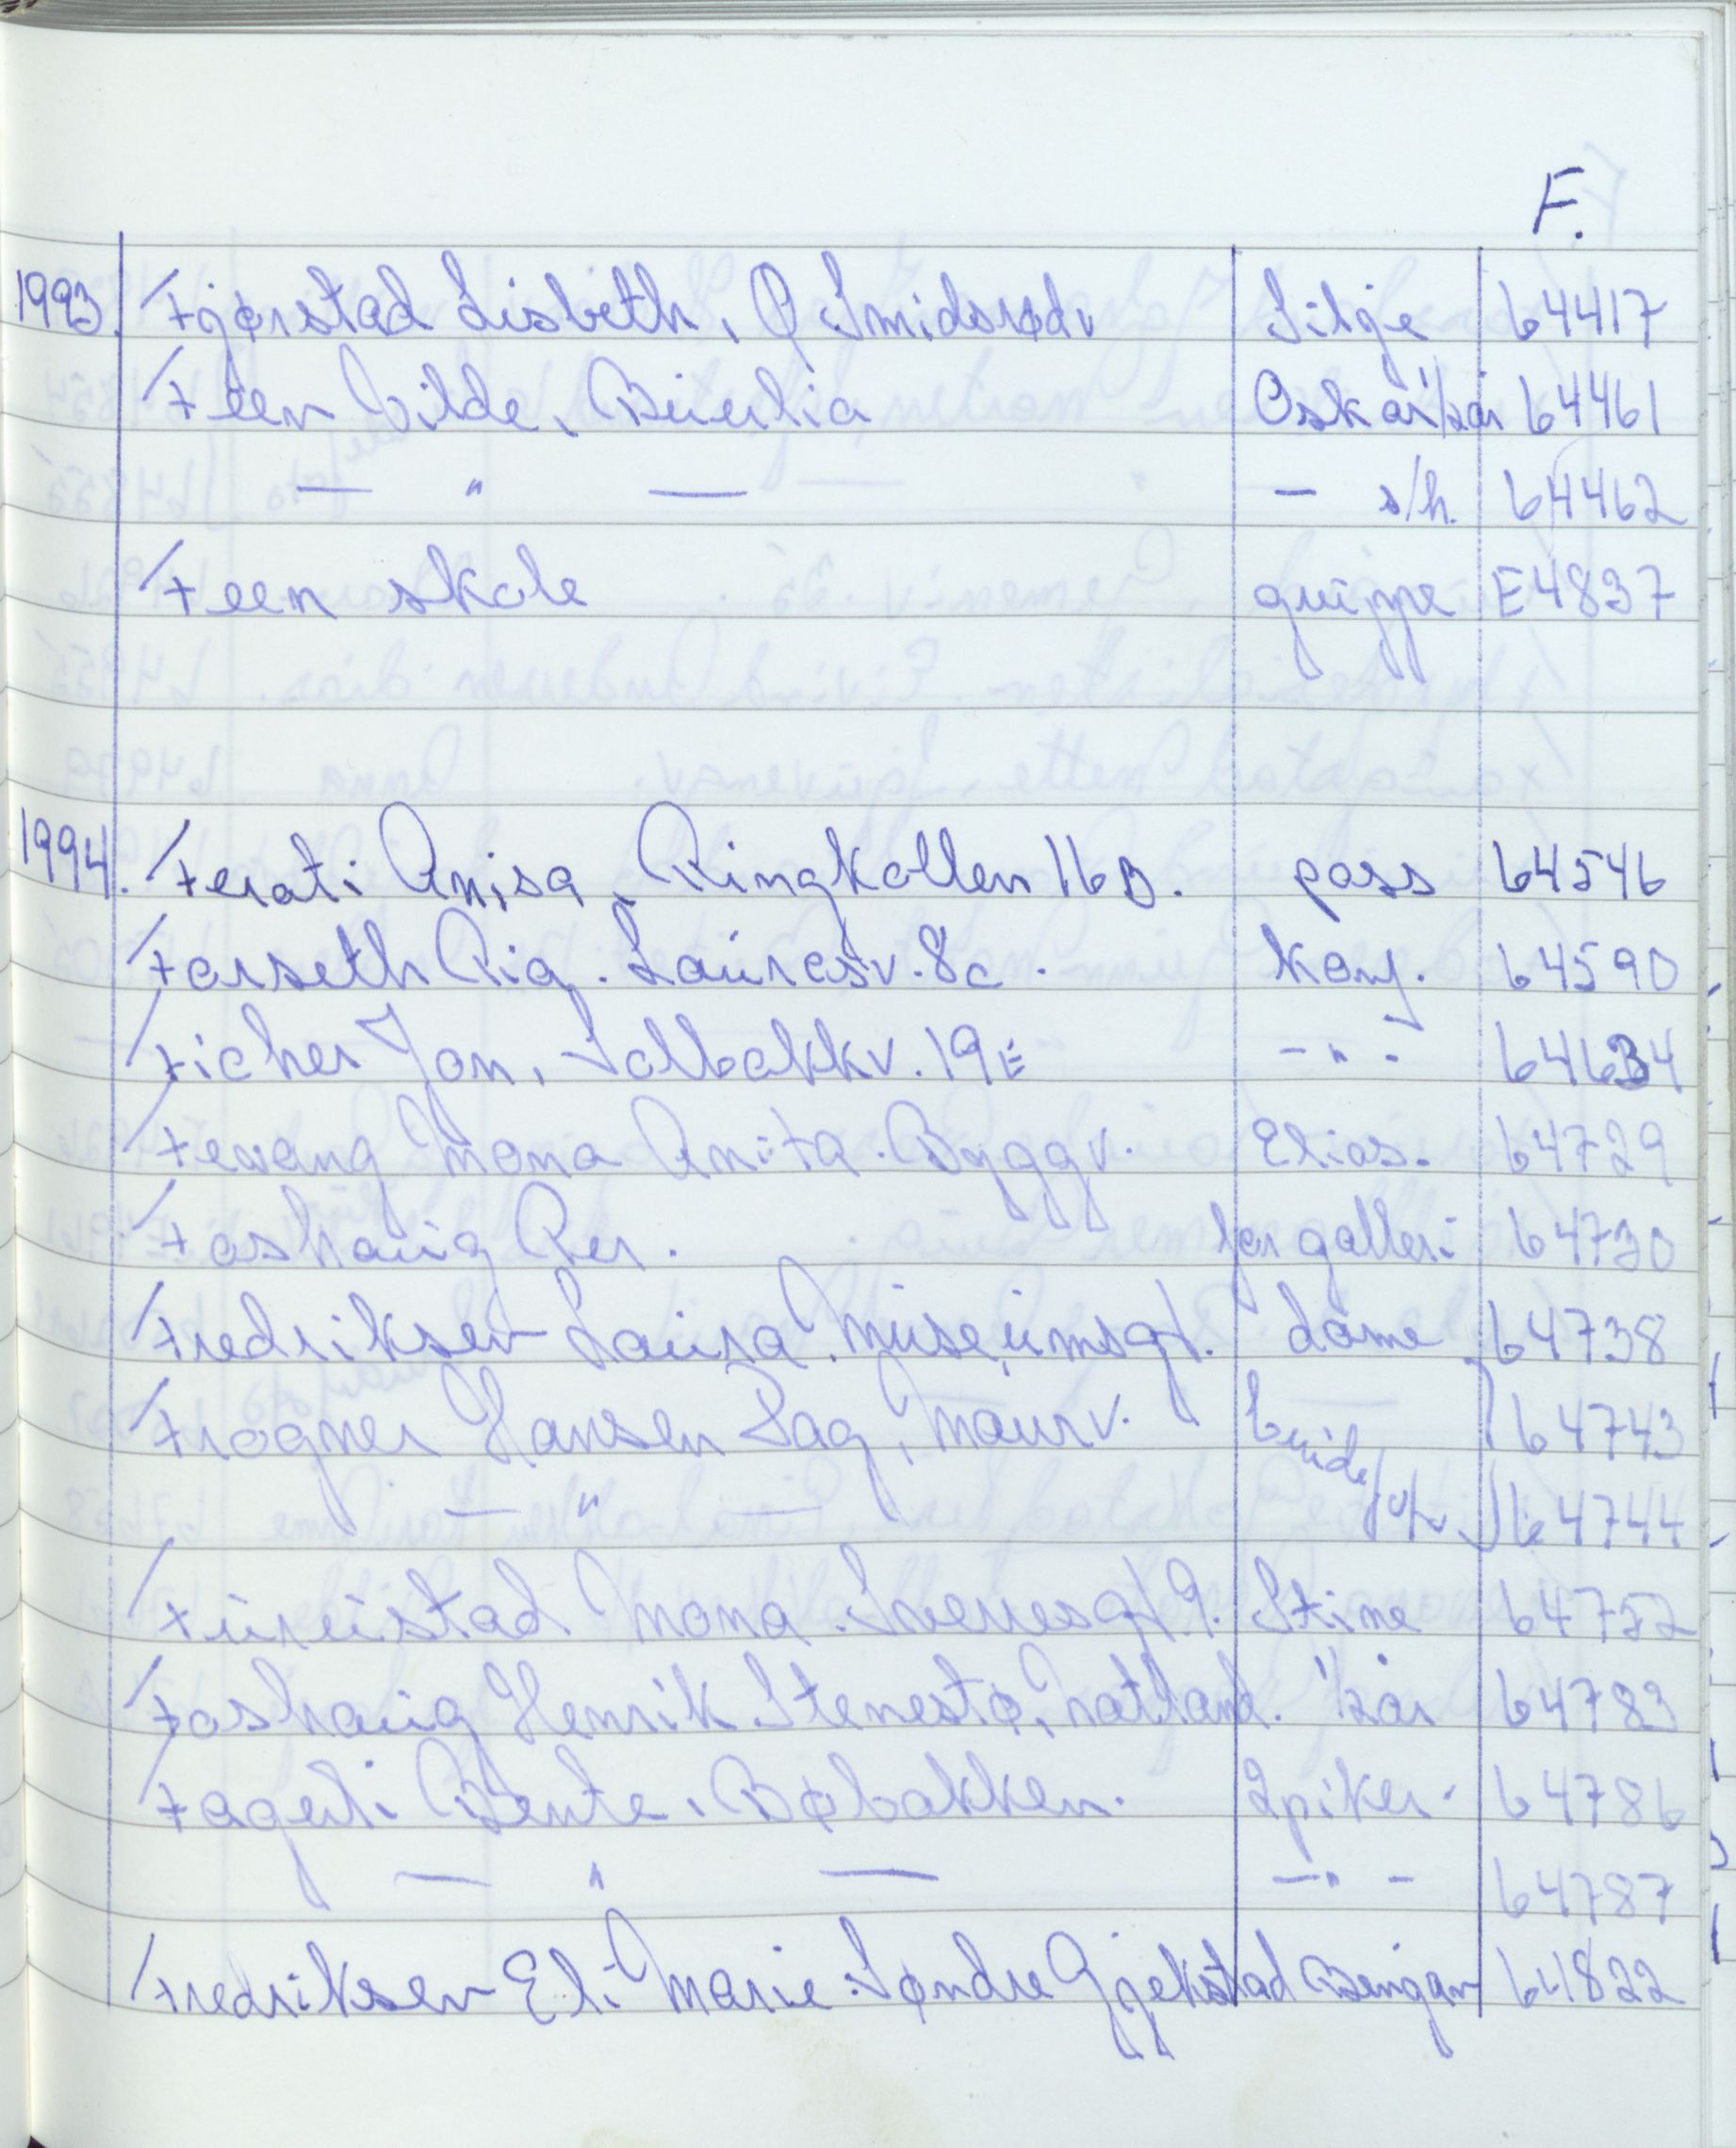 F.
1993. Fjørstad Lisbeth, Ø Smidsrødv Silje 64417
Feen Vilde, Buerlia Oskar 1/2 år 64461
— " — — s/h. 64462
Feen skole gruppe E4837
1994. Ferati Anisa, Ringkollen 16 B. pass 64546
Forseth Pia. Laurasv. 8c. konf. 64590
Ficher Jon, Solbakkv. 19E — " - 64634
Fevang Mona Anita. Byggv. Elias. 64729
Foshaug Per. for galleri 64730
Fredriksen Laura. Museumsgt. dame 64738
Frogner Hansen Dag, Maurv. brude 64743
— " — 64744
Furustad Mona. Sverresgt 9. Stine 64752
Foshaug Henrik Stenestø, Natland. 1/2 år 64783
Fagerli Bente. Bøbakken. 2 piker. 64786
— " — — " - 64787
Fredriksen Eli Marie. Søndre Gjekstad Bengan 64822